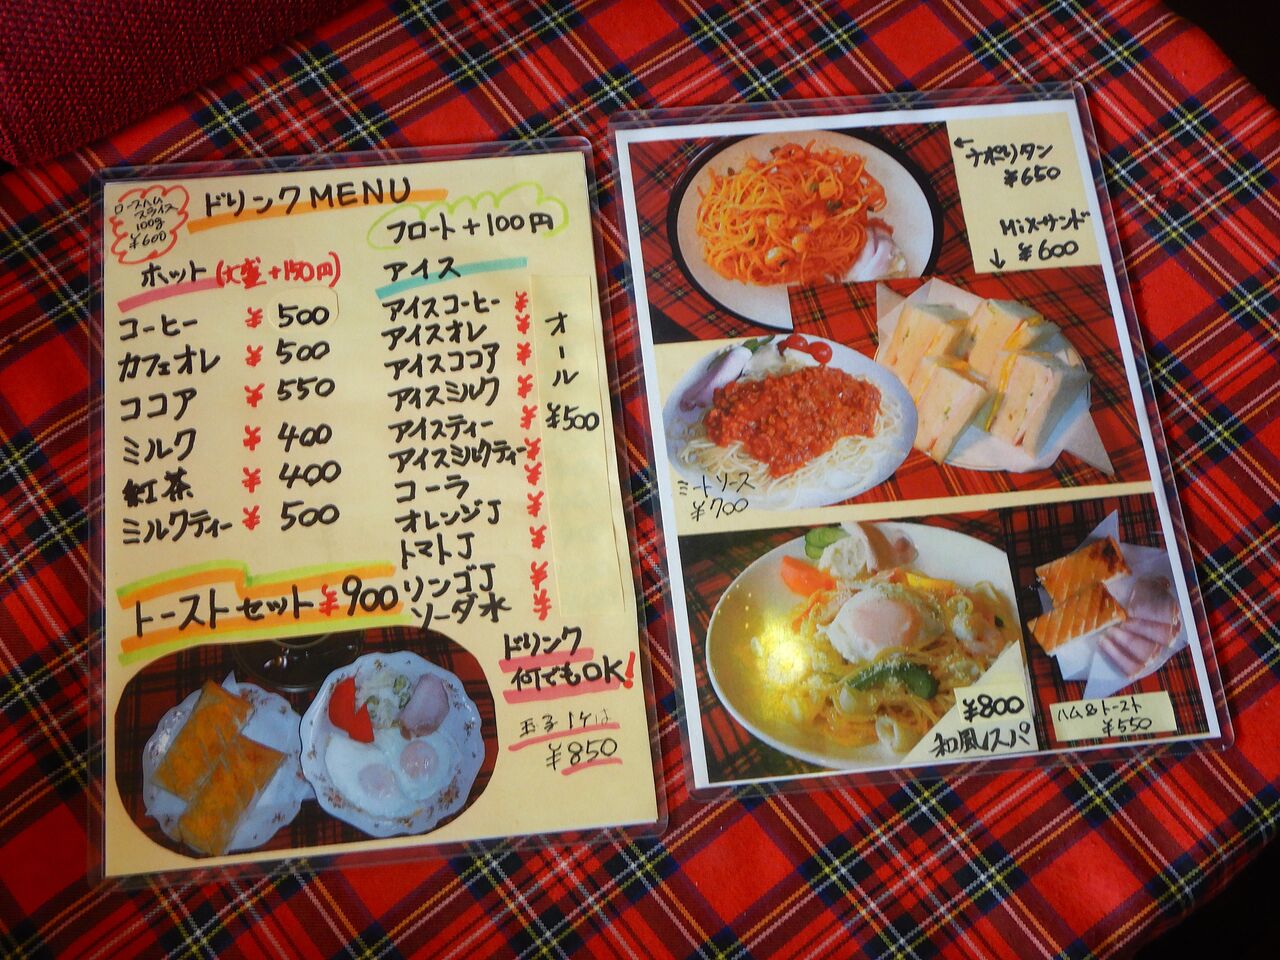 ロースハム
スライス
100g
¥600
ドリンクMENU
フロート+100円
ホット(大盛+150円)
コーヒー ¥500
カフェオレ ¥500
ココア ¥550
ミルク ¥400
紅茶 ¥400
ミルクティー ¥500
アイス
アイスコーヒー ¥
アイスオレ ¥
アイスココア ¥
アイスミルク ¥
アイスティー ¥
アイスミルクティー ¥
コーラ ¥
オレンジJ ¥
トマトJ ¥
リンゴJ ¥
ソーダ水 ¥
オール
¥500
トーストセット¥900
ドリンク
何でもOK!
玉子1ケは
¥850
←ナポリタン
¥650
Mixサンド
↓ ¥600
ミートソース
¥700
¥800
和風スパ
ハム&トースト
¥550